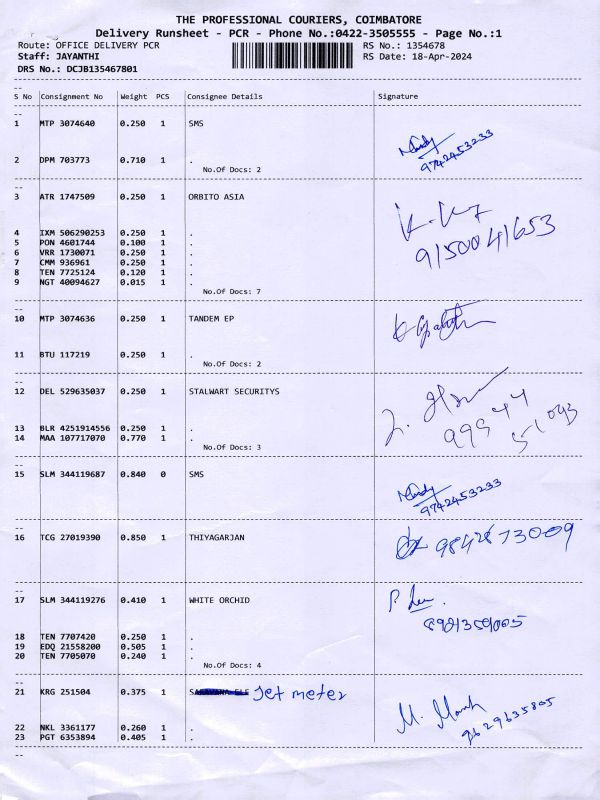 THE PROFESSIONAL COURIERS, COIMBATORE
Delivery Runsheet - PCR - Phone No.:0422-3505555 - Page No.:1
Route: OFFICE DELIVERY PCR RS No.: 1354678
Staff: JAYANTHI RS Date: 18-Apr-2024
DRS No.: DCJB135467801
S No Consignment No Weight PCS Consignee Details Signature
1 MTP 3074640 0.250 1 SMS
9742453233
2 DPM 703773 0.710 1 .
No.Of Docs: 2
3 ATR 1747509 0.250 1 ORBITO ASIA
4 IXM 506290253 0.250 1 .
9150041653
5 PON 4601744 0.100 1 .
6 VRR 1730071 0.250 1 .
7 CMM 936961 0.250 1 .
8 TEN 7725124 0.120 1 .
9 NGT 40094627 0.015 1 .
No.Of Docs: 7
10 MTP 3074636 0.250 1 TANDEM EP
11 BTU 117219 0.250 1 .
No.Of Docs: 2
12 DEL 529635037 0.250 1 STALWART SECURITYS
13 BLR 4251914556 0.250 1 .
14 MAA 107717070 0.770 1 .
No.Of Docs: 3
15 SLM 344119687 0.840 0 SMS
9742453233
16 TCG 27019390 0.850 1 THIYAGARJAN
9842873009
17 SLM 344119276 0.410 1 WHITE ORCHID
18 TEN 7707420 0.250 1 .
19 EDQ 21558200 0.505 1 .
20 TEN 7705070 0.240 1 .
No.Of Docs: 4
21 KRG 251504 0.375 1 Jet meter
22 NKL 3361177 0.260 1 .
9629635805
23 PGT 6353894 0.405 1 .